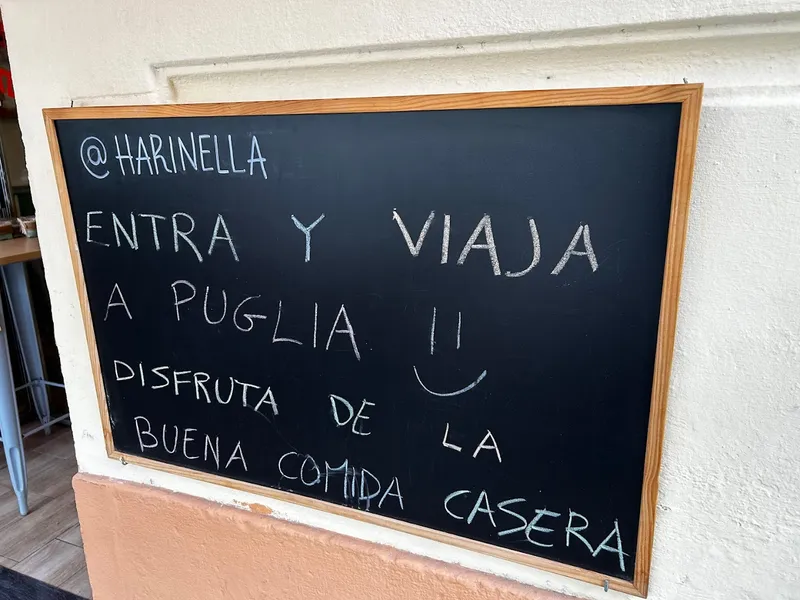 @HARINELLA
ENTRA Y VIAJA
A PUGLIA
DISFRUTA DE LA
BUENA COMIDA CASERA